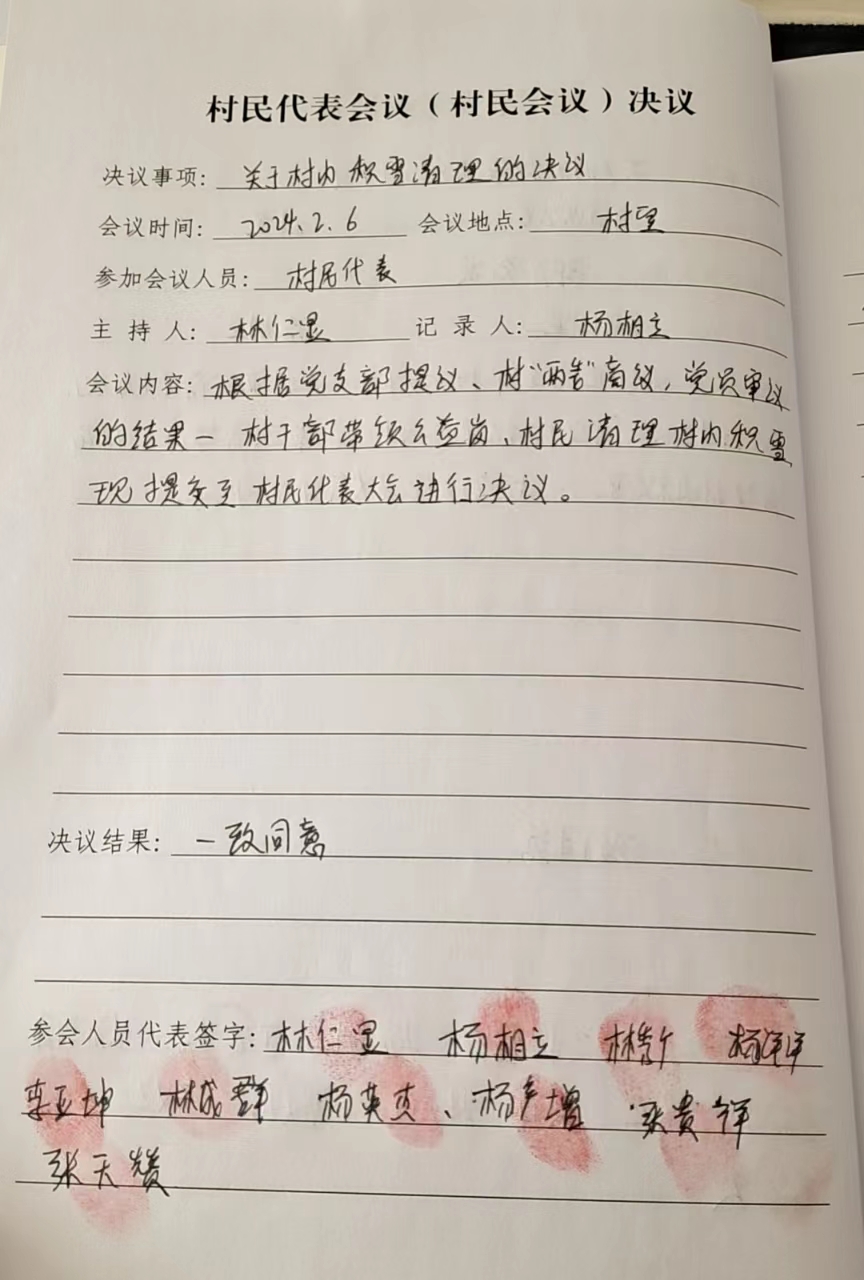 村民代表会议（村民会议）决议
决议事项：关于村内积雪清理的决议
会议时间：2024.2.6 会议地点：村室
参加会议人员：村民代表
主持人：林仁显 记录人：杨相立
会议内容：根据党支部提议、村“两委”商议，党员审议
的结果一村干部带领公益岗、村民清理村内积雪
现提交至村民代表大会进行决议。
决议结果：一致同意
参会人员代表签字：林仁显 杨相立 杨洋洋
李亚坤 林成群 杨英杰、杨产增 张贵祥
张天赞